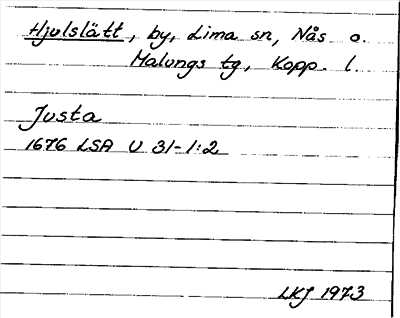 Hjulslätt, by, Lima sn, Nås o.
Malungs tg, Kopp. l.
Justa
1676 LSA U 31-1:2
LKJ 1973